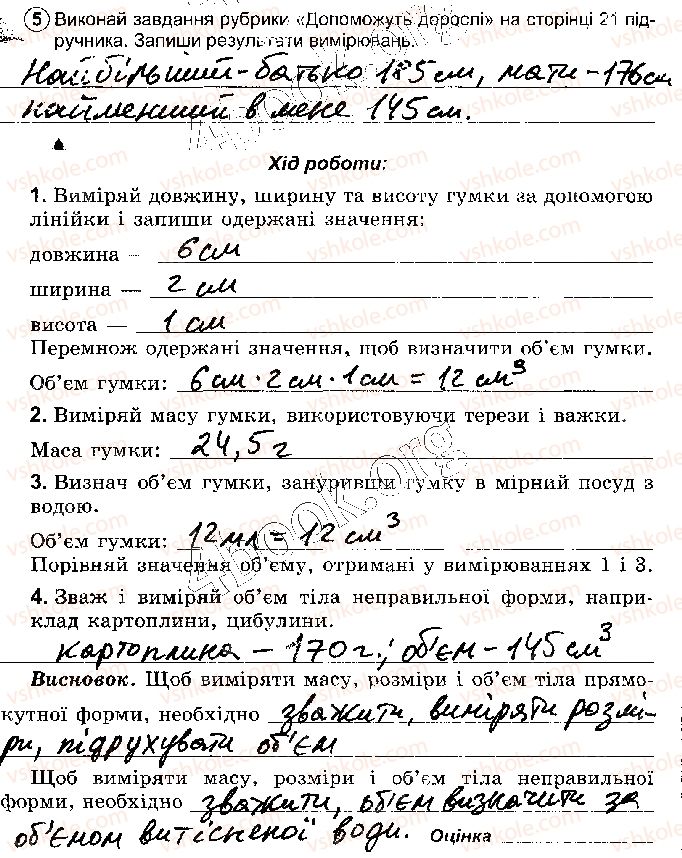 5 Виконай завдання рубрики «Допоможуть дорослі» на сторінці 21 під-
ручника. Запиши результати вимірювань.
Найбільший - батько 185 см, мати - 176 см
найменший в мене 145 см.
Хід роботи:
1. Виміряй довжину, ширину та висоту гумки за допомогою
лінійки і запиши одержані значення:
довжина – 6 см
ширина — 2 см
висота — 1 см
Перемнож одержані значення, щоб визначити об’єм гумки.
Об’єм гумки: 6 см · 2 см · 1 см = 12 см³
2. Виміряй масу гумки, використовуючи терези і важки.
Маса гумки: 24,5 г
3. Визнач об’єм гумки, зануривши гумку в мірний посуд з
водою.
Об’єм гумки: 12 мл = 12 см³
Порівняй значення об’єму, отримані у вимірюваннях 1 і 3.
4. Зваж і виміряй об’єм тіла неправильної форми, напри-
клад картоплини, цибулини.
картоплина - 170 г.; об'єм - 145 см³
Висновок. Щоб виміряти масу, розміри і об’єм тіла прямо-
кутної форми, необхідно зважити, виміряти розмі-
ри, підрухувати об'єм
Щоб виміряти масу, розміри і об’єм тіла неправильної
форми, необхідно зважити, об'єм визначити за
об'єном витісненої води. Оцінка
4book.org
vshkole.com